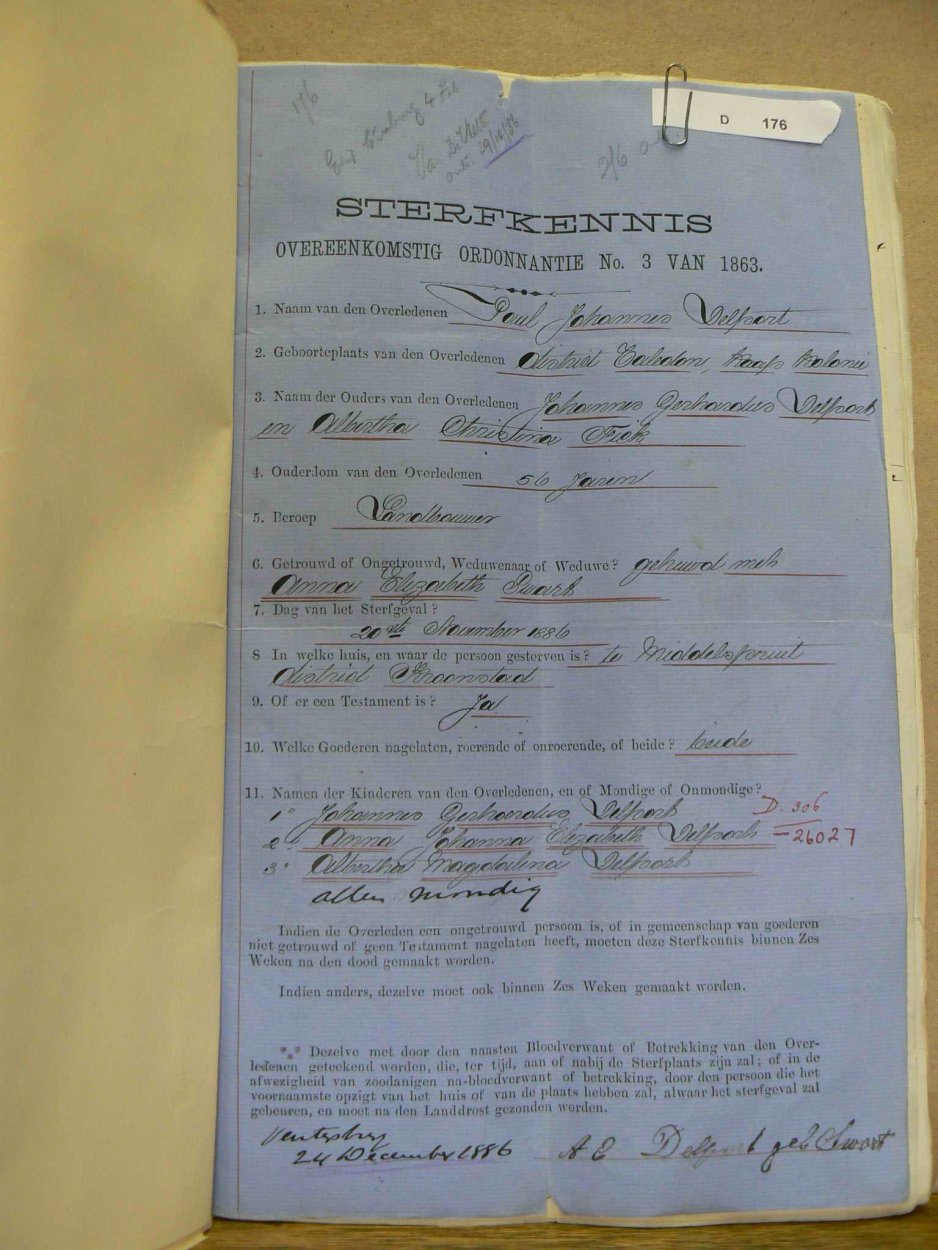 1/6
4 Feb
29/12/86
2/6
D 176
STERFKENNIS
OVEREENKOMSTIG ORDONNANTIE No. 3 VAN 1863.
1. Naam van den Overledenen Paul Johannes Delport
2. Geboorteplaats van den Overledenen district Caledon, Kaap Kolonie
3. Naam der Ouders van den Overledenen Johannes Gerhardus Delport
en Albertha Christina Fick
4. Ouderdom van den Overledenen 56 Jaren
5. Beroep Landbouwer
6. Getrouwd of Ongetrouwd, Weduwenaar of Weduwe? gehuwd met
Anna Elizabeth Swart
7. Dag van het Sterfgeval?
20ste November 1886
8 In welke huis, en waar de persoon gesterven is? te Middelspruit
district Kroonstad
9. Of er een Testament is? Ja
10. Welke Goederen nagelaten, roerende of onroerende, of beide? beide
11. Namen der Kinderen van den Overledenen, en of Mondige of Onmondige?
1° Johannes Gerhardus Delport D. 306
2° Anna Johanna Elizabeth Delport — 26027
3° Albertha Magdalena Delport
allen mondig
Indien de Overleden een ongetrouwd persoon is, of in gemeenschap van goederen
niet getrouwd of geen Testament nagelaten heeft, moeten deze Sterfkennis binnen Zes
Weken na den dood gemaakt worden.
Indien anders, dezelve moet ook binnen Zes Weken gemaakt worden.
*** Dezelve met door den naasten Bloedverwant of Betrekking van den Over-
ledenen geteekend worden, die, ter tijd, aan of nabij de Sterfplaats zijn zal; of in de
afwezigheid van zoodanigen na-bloedverwant of betrekking, door den persoon die het
voornaamste opzigt van het huis of van de plaats hebben zal, alwaar het sterfgeval zal
gebeuren, en moet na den Landdrost gezonden worden.
Ventersburg
24 December 1886 A E Delport geb Swart